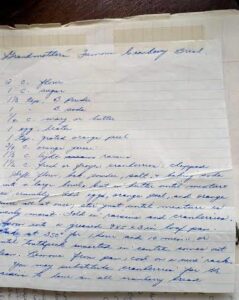 Grandmother's Famous Cranberry Bread
2 c. flour
1 c. sugar
1½ tsp. B. Powder
B. soda
¼ c. marg or butter
1 egg, beaten
1 tsp. grated orange peel
¾ c. orange juice
1½ c. light raisins
1½ c. fresh or frozen cranberries, chopped
Sift flour, sugar, powder, salt & baking soda
into a large bowl, cut in butter until mixture
is crumbly. Add egg, orange peel, and orange
juice all at once, stir just until mixture is
evenly moist. Fold in raisins and cranberries.
Spoon into a greased 9x5x3 in loaf pan.
Bake at 350° for 1 hour and 10 min. or
until toothpick inserted in center comes out
clean. Remove from pan, cool on a wire rack.
You may substitute cranberries for the
raisins to have an all cranberry bread